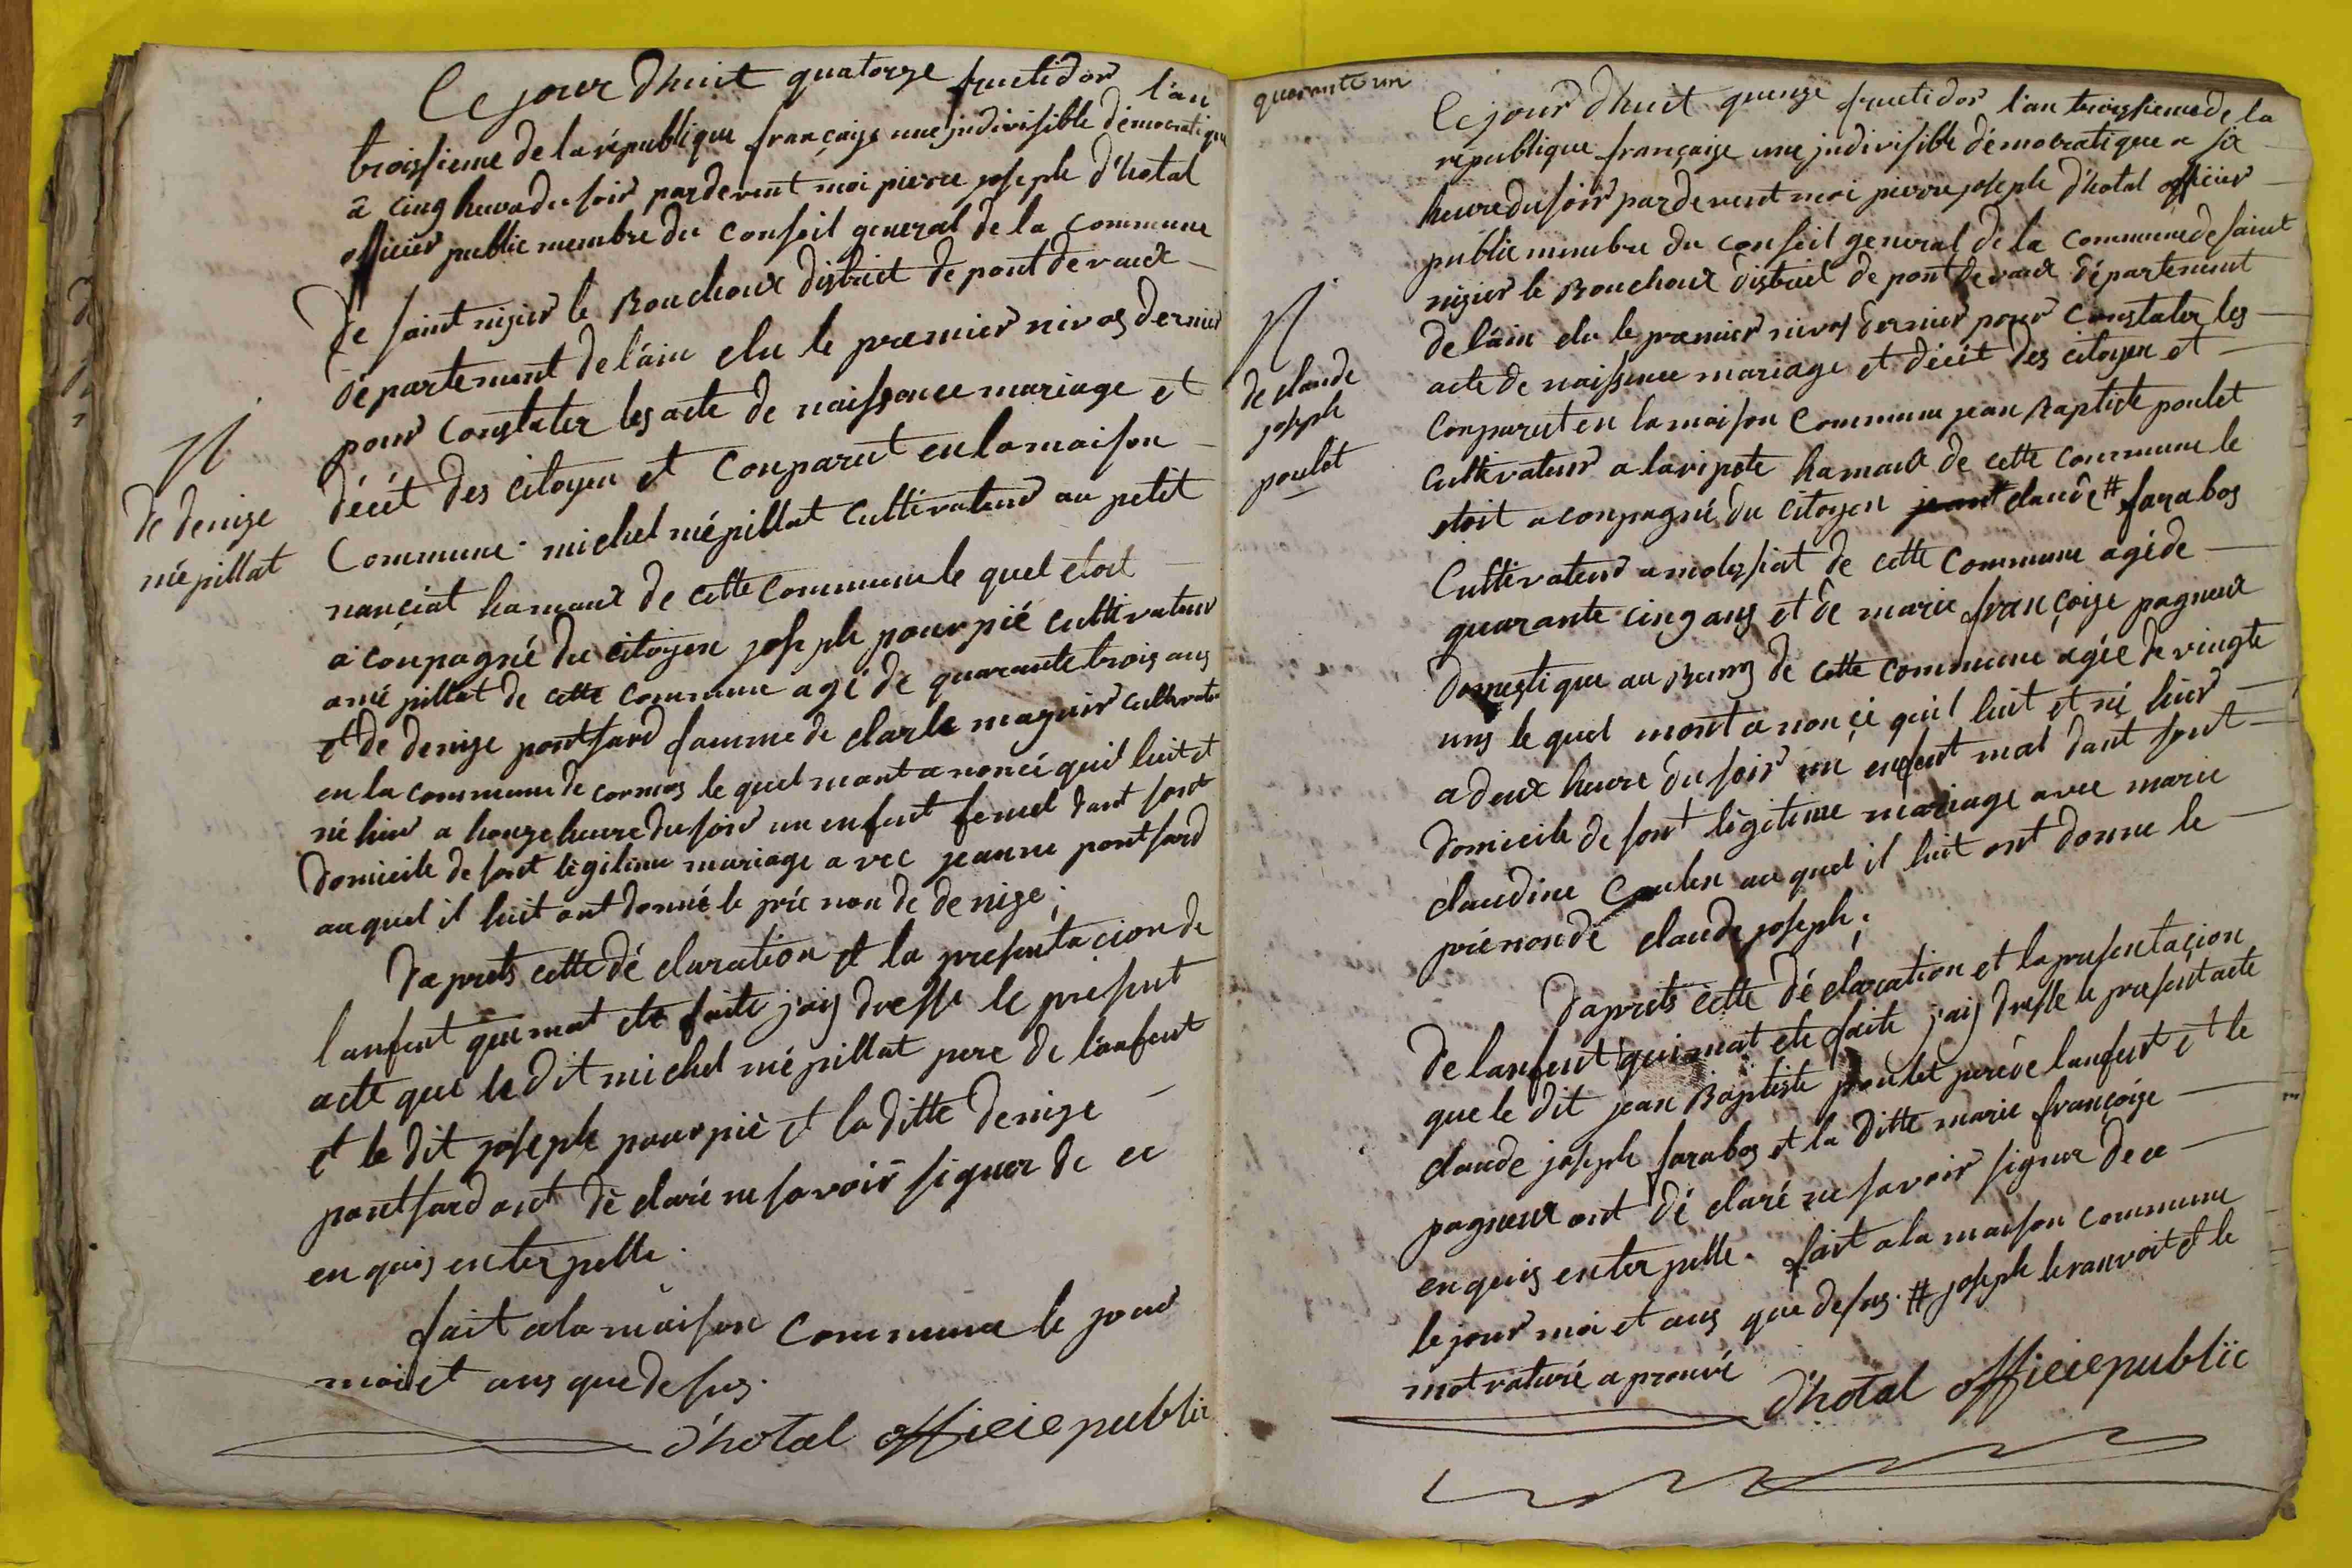 Ce jour dhuit quatorze fructidor l'an
troissieme de la république françaige une jndivisible démocratique
a cinq heure du soir pardevent moi pierre joseph d'hotal
officier public membre du conseil general de la commune
de saint nizier le Bouchoux district de pont de vaux
département de lain elu le premier nivos dernier
pour constater les acte de naissance mariage et
décét des citoyen et conparut en la maison
N
de denize
mépillat
commune michel mépillat cultivateur au petit
nanciat hamaux de cette commune le quel etoit
aconpagné du citoyen joseph pourpié cultivateur
a mépillat de cette commune agé de quarante trois ans
et de denize pontsard famme de clarle magnir cultivateur
en la commune de cormos le quel mont anoncé quil luit et
né hier a honze heure du soir un enfent femel dant sont
domicile de sont légitime mariage avec jeanne pontsard
auquel il luit ont donné le prénon de denize;
daprets cette déclaration et la presentacion de
lanfent qui mat ete faite j'aij dresse le present
acte que le dit michel mépillat pere de lanfent
et le dit joseph pourpié et la ditte denize
pontsard ont déclaré ne savoir signer de ce
enquis enterpelle.
fait a la maison commune le jour
moi et ans que desus.
d'hotal officie public
quarante un
Ce jour dhuit quenze fructidor l'an troissieme de la
république française une jndivisible démocratique a six
heure du soir pardevent moi pierre joseph d'hotal officier
public menbre du conseil general de la commune de saint
nizier le Bouchoux district de pont de vaux département
de láin elu le premier nivos dernier pour constater les
acte de naissence mariage et décét des citoyen et
N
de claude
joseph
poulet
conparut en la maison commune jean Baptiste poulet
cultivateur a laripete hamaux de cette commune le
etoit aconpagné du citoyen jeant claude # farabos
cultivateur a molessiat de cette commune agé de
quarante cinq ans et de marie françoise pagneux
domestique au Bung de cette commune agée de vingte
ans le quel mont anoncé quil luit et né hier
a deux heure du soir un enfent mal dant sont
domicile de sont légitime mariage avec marie
claudine au quel il luit ont donne le
prénon de claude joseph;
daprets cette déclaration et la presentaçion
de lanfent qui mat ete faite jaij dresse le present acte
que le dit jean Baptiste poulet pere de lanfent et le
claude joseph farabos et la ditte marie françoise
pagneux ont déclaré ne savoir signer de ce
enquis enterpelle. fait a la maison commune
le jour moi et ans que desus. # joseph le ranvoit et le
mot raturé aprouvé
d'hotal officie public